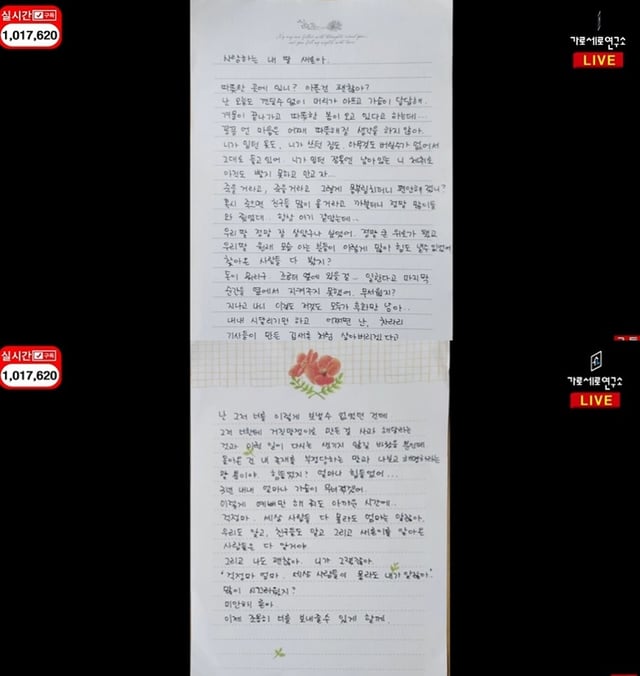 실시간 구독
1,017,620
가로세로연구소
LIVE
사랑하는 내 딸 새론아.
따뜻한 곳에 있니? 아픈건 괜찮아?
난 오늘도 머리가 아프고 가슴이 답답해.
겨울이 끝나가고 따뜻한 봄이 오고 있다고 하는데...
꽁꽁 언 마음은 어째 따뜻해질 생각을 하지 않아.
니가 입던 옷도, 니가 쓰던 짐도 아무것도 버릴수가 없어서
그대로 들고있어. 니가 입던 잠옷엔 남아있는 니 체취로
아직도 빨지 못하고 안고 자...
죽을거라고, 죽을거라고 그렇게 몸부림치더니 편안해 졌니?
혹시 죽으면 친구들 많이 올거라고 까불더니 정말 많이들
와 줬었대.. 항상 여기 같았는데..
우리딸 정말 잘 살았구나 싶었어. 정말 큰 위로가 됐고
우리딸 원래 모습 아는 분들이 이렇게 많아 힘도 낼수 있었어
찾아온 사람들 다 봤지?
돈이 뭐라구. 조금더 옆에 있을 걸... 일한다고 마지막
순간을 옆에서 지켜주지 못했어. 무서웠지?
지나고 나니 이것도 저것도 모두가 후회만 남아..
내내 시달리기만 하고 어쩌면 난, 차라리
기사들이 만든 김새론 처럼 살아버리겠다고
실시간 구독
1,017,620
가로세로연구소
LIVE
난 그저 너를 이렇게 보낼수 없었던 건데
그저 너한테 거짓말쟁이로 만든걸 사과 해달라는
것과 이런 일이 다시는 생기지 않길 바랬을 뿐인데
돌아온 건 내 존재를 부정당하는 말과 나보고 해명하라는
말 뿐이야. 힘들었지? 얼마나 힘들었어...
3년 내내 얼마나 가슴이 무너졌겠어.
이렇게 예뻐만 해 줘도 아까운 시간에..
걱정마. 세상 사람들 다 몰라도 엄마는 알잖아.
우리도 알고, 친구들도 알고 그리고 새론이를 알아온
사람들은 다 알거야
그리고 나도 괜찮아. 니가 그랬잖아.
'걱정마 엄마. 세상 사람들이 몰라도 내가 알잖아'
많이 시끄러웠지?
미안해 론아
이제 조용히 너를 보내줄수 있게 할께.